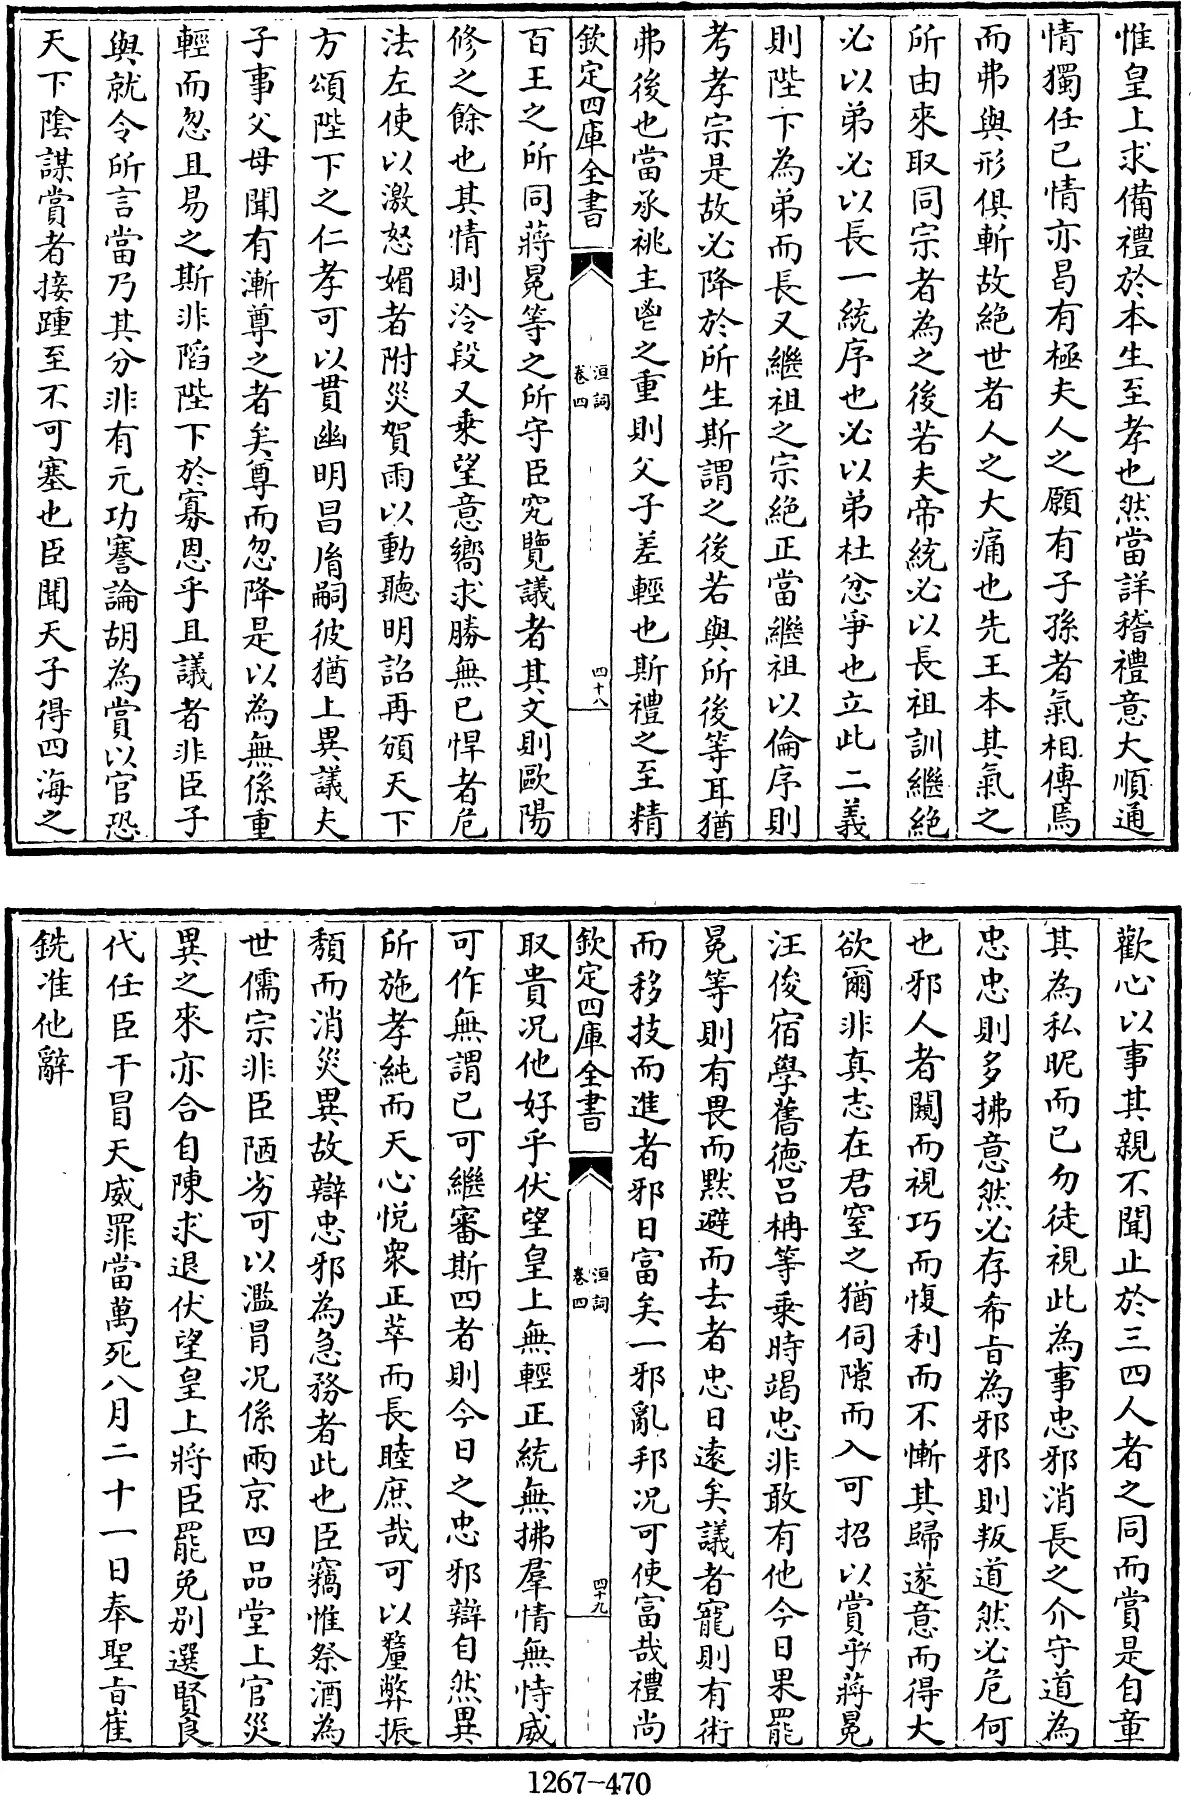 惟皇上求備禮於本生至孝也然當詳稽禮意大順通
情獨任已情亦曷有極夫人之願有子孫者氣相傳焉
而弗與形俱斬故絶世者人之大痛也先王本其氣之
所由來取同宗者為之後若夫帝統必以長祖訓繼絶
必以弟必以長一統序也必以弟杜忿爭也立此二義
則陛下為弟而長又繼祖之宗絶正當繼祖以倫序則
考孝宗是故必降於所生斯謂之後若與所後等耳猶
弗後也當承祧主鬯之重則父子差輕也斯禮之至精
欽定四庫全書
洹詞
卷四
四十八
百王之所同蔣冕等之所守臣究覽議者其文則歐陽
修之餘也其情則冷段又乘望意嚮求勝無已悍者危
法左使以激怒媚者附災賀雨以動聽明詔再頒天下
方頌陛下之仁孝可以貫幽明昌胤嗣彼猶上異議夫
子事父母聞有漸尊之者矣尊而忽降是以為無係重
輕而忽且易之斯非陷陛下於寡恩乎且議者非臣子
與就令所言當乃其分非有元功謇論胡為賞以官恐
天下陰謀賞者接踵至不可塞也臣聞天子得四海之
歡心以事其親不聞止於三四人者之同而賞是自童
其為私昵而已勿徒視此為事忠邪消長之介守道為
忠忠則多拂意然必存希旨為邪邪則叛道然必危何
也邪人者闚而視巧而愎利而不慚其歸遂意而得大
欲爾非真志在君窒之猶伺隙而入可招以賞乎蔣冕
汪俊宿學舊德吕柟等乘時竭忠非敢有他今日果罷
冕等則有畏而默避而去者忠日逺矣議者寵則有術
而移技而進者邪日富矣一邪亂邦况可使富哉禮尚
欽定四庫全書
洹詞
卷四
四十九
取貴况他好乎伏望皇上無輕正統無拂羣情無恃威
可作無謂已可繼審斯四者則今日之忠邪辯自然異
所施孝純而天心悦衆正萃而長睦庶哉可以釐弊振
頽而消災異故辯忠邪為急務者此也臣竊惟祭酒為
世儒宗非臣陋劣可以濫冒况係兩京四品堂上官災
異之來亦合自陳求退伏望皇上將臣罷免别選賢良
代任臣干冒天威罪當萬死八月二十一日奉聖旨崔
銑准他辭
1267-470